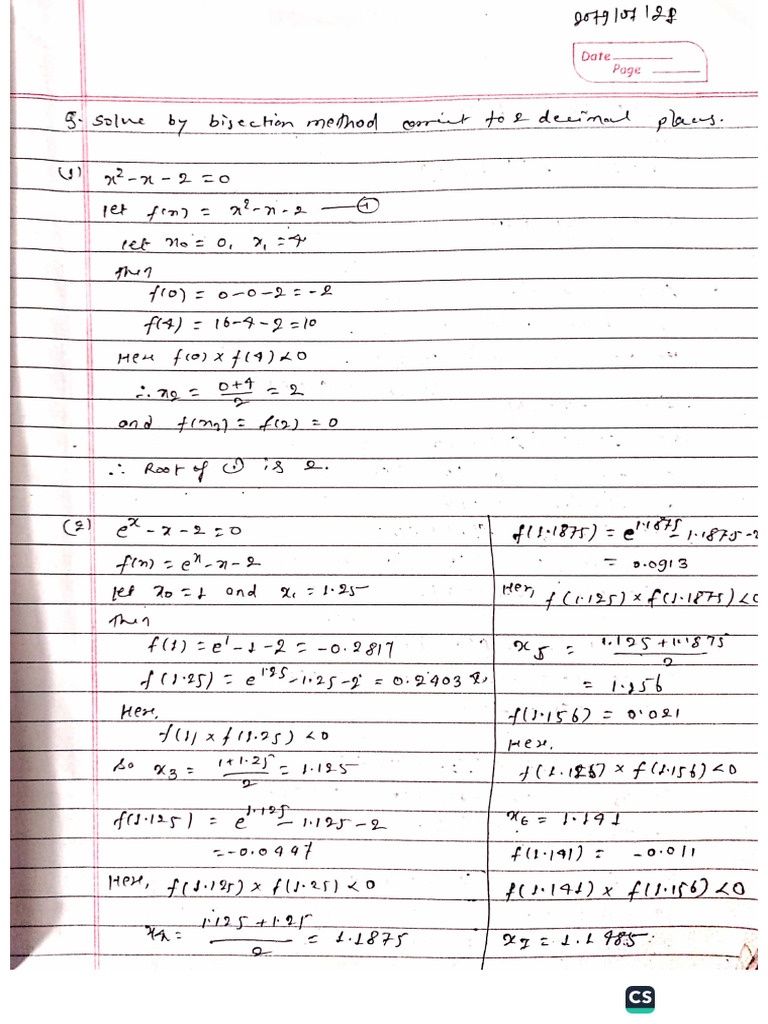 2079/07/28
Date
Page
Q. solve by bisection method correct to 2 decimal places.
(1) x² - x - 2 = 0
let f(x) = x² - x - 2 — (1)
let x₀ = 0, x₁ = 4
then
f(0) = 0-0-2 = -2
f(4) = 16-4-2 = 10
Here f(0) x f(4) < 0
∴ x₂ = (0+4)/2 = 2
and f(x₂) = f(2) = 0
∴ Root of (1) is 2.
(2) eˣ - x - 2 = 0
f(x) = eˣ - x - 2
let x₀ = 1 and x₁ = 1.25
then
f(1) = e¹ - 1 - 2 = -0.2817
f(1.25) = e^1.25 - 1.25 - 2 = 0.2403
Here,
f(1) x f(1.25) < 0
so x₃ = (1+1.25)/2 = 1.125
f(1.125) = e^1.125 - 1.125 - 2
= -0.0447
Here, f(1.125) x f(1.25) < 0
x₄ = (1.125 + 1.25)/2 = 1.1875
f(1.1875) = e^1.1875 - 1.1875 - 2
= 0.0913
Here, f(1.125) x f(1.1875) < 0
x₅ = (1.125 + 1.1875)/2
= 1.156
f(1.156) = 0.021
Here,
f(1.125) x f(1.156) < 0
x₆ = 1.141
f(1.141) = -0.011
f(1.141) x f(1.156) < 0
x₇ = 1.1485
CS